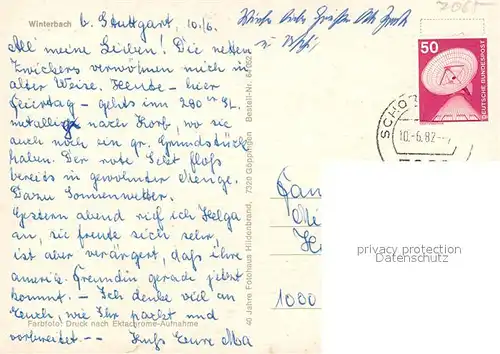 Winterbach b. Stuttgart, 10./6.
All meine Lieben! Die netten
Zwickers verwöhnen mich in
alter Weise. Heute - hier
Feiertag - gehts im 280 SL
metallic nach Korb, wo sie
auch noch ein gr. Grundstück
haben. Der rote Sekt floß
bereits in gewohnter Menge.
Dazu Sonnenwetter.
Gestern abend rief ich Helga
an, sie freute sich sehr,
ist aber verärgert, daß ihre
amerik. Freundin gerade jetzt
kommt. - Ich denke viel an
Euch, wie Ihr packt und
vorbereitet. -- Kuss Eure Ma
Farbfoto: Druck nach Ektachrome-Aufnahme
40 Jahre Fotohaus Hildenbrand, 7320 Göppingen Bestell-Nr. 64/052
liebe Grüße
50
DEUTSCHE BUNDESPOST
SCHO
10.-6.82
Fam
1000
privacy protection
© Ansichtskarten-Center